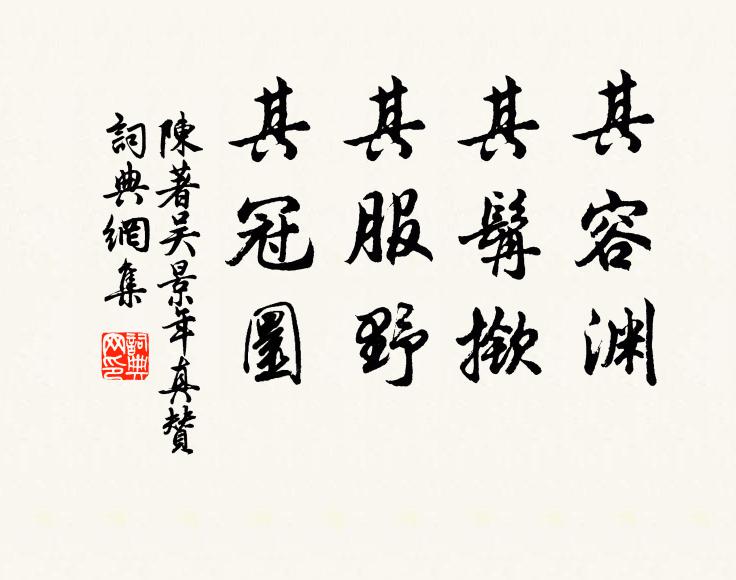 其容渊
其
其服野
其冠圜
陳著吴景年真赞
詞典網集
詞典网印